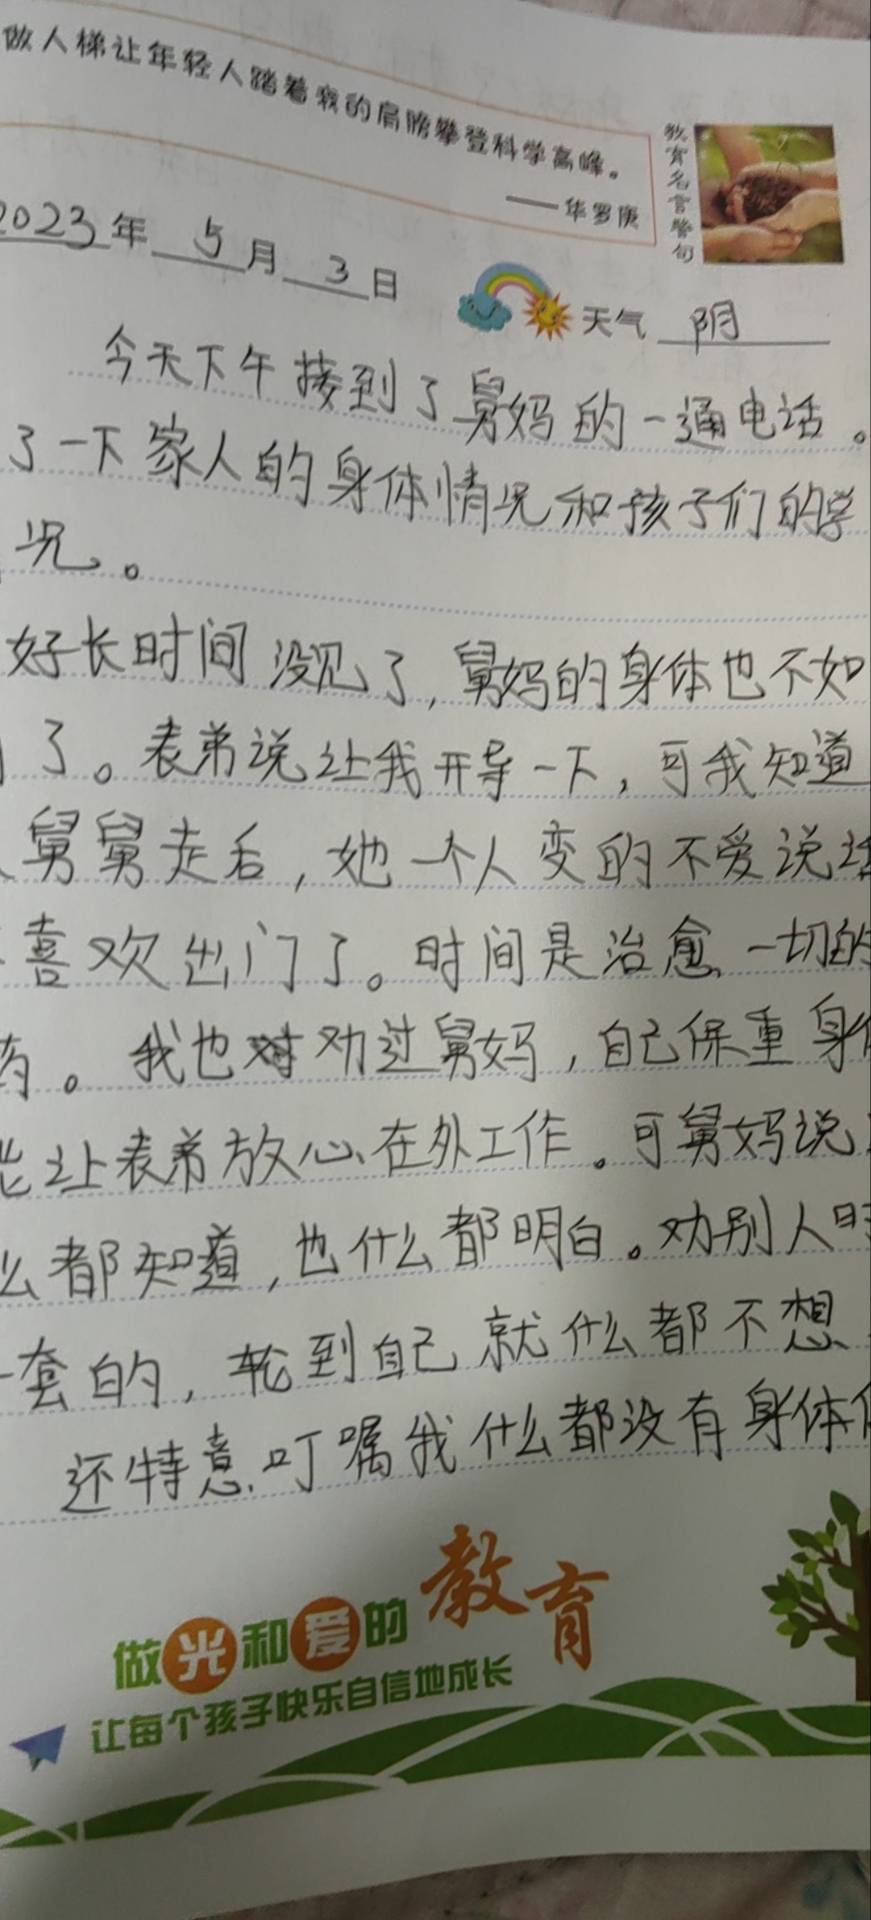 做人梯让年轻人踏着我的肩膀攀登科学高峰。
——华罗庚
教育名言警句
2023年 5月 3日
天气 阴
今天下午接到了舅妈的一通电话。
了一下家人的身体情况和孩子们的学
况。
好长时间没见了,舅妈的身体也不如
了。表弟说让我开导一下,可我知道
舅舅走后,她一个人变的不爱说话
喜欢出门了。时间是治愈一切的
药。我也劝过舅妈,自己保重身体
能让表弟放心在外工作。可舅妈说
么都知道,也什么都明白。劝别人时
一套的,轮到自己就什么都不想
还特意叮嘱我什么都没有身体
做光和爱的教育
让每个孩子快乐自信地成长